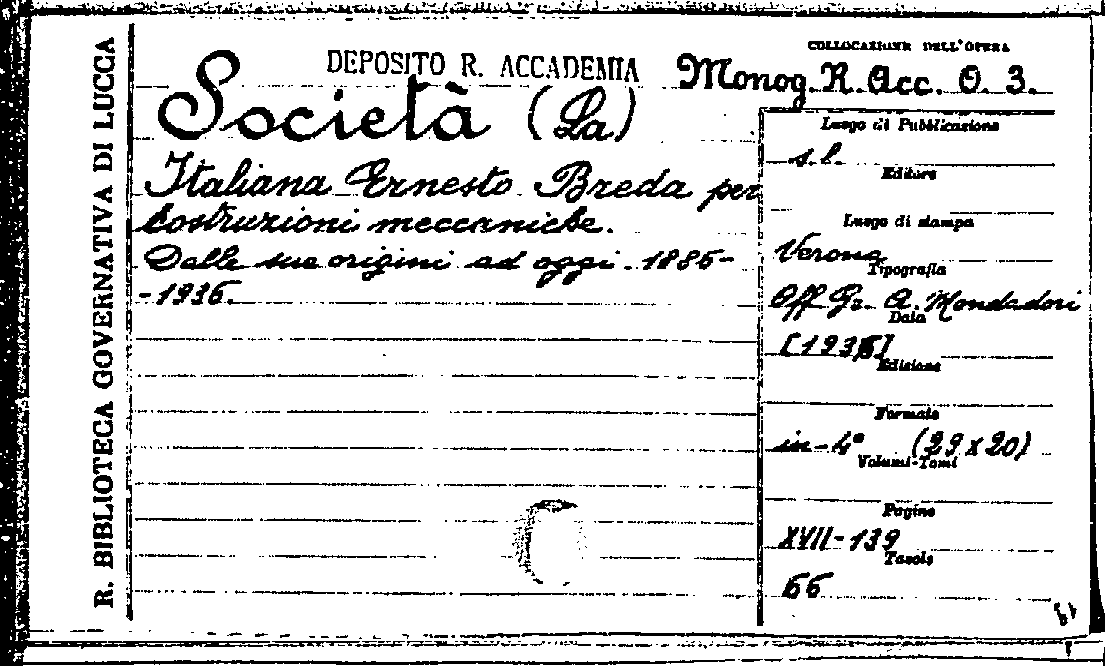 R. BIBLIOTECA GOVERNATIVA DI LUCCA
DEPOSITO R. ACCADEMIA
COLLOCAZIONE DELL'OPERA
Monog. R. Acc. O. 3.
Società (La)
Italiana Ernesto Breda per
costruzioni meccaniche.
Dalle sue origini ad oggi. 1886-
-1936.
Luogo di Pubblicazione
s.l.
Editore
Luogo di stampa
Verona
Tipografia
Off. Gr. A. Mondadori
Data
[1936]
Edizione
Formato
in-4° (29 x 20)
Volumi-Tomi
Pagine
XVII-139
Tavole
66